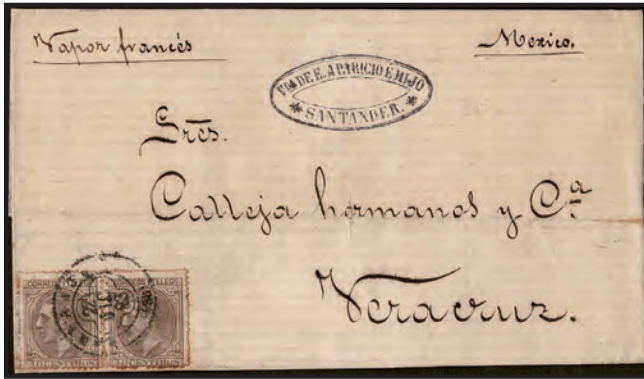 Vapor francés
Mexico.
VDA DE E. APARICIO É HIJO
SANTANDER.
Sres.
Calleja hermanos y Cª
Veracruz.
CORREOS
DIC